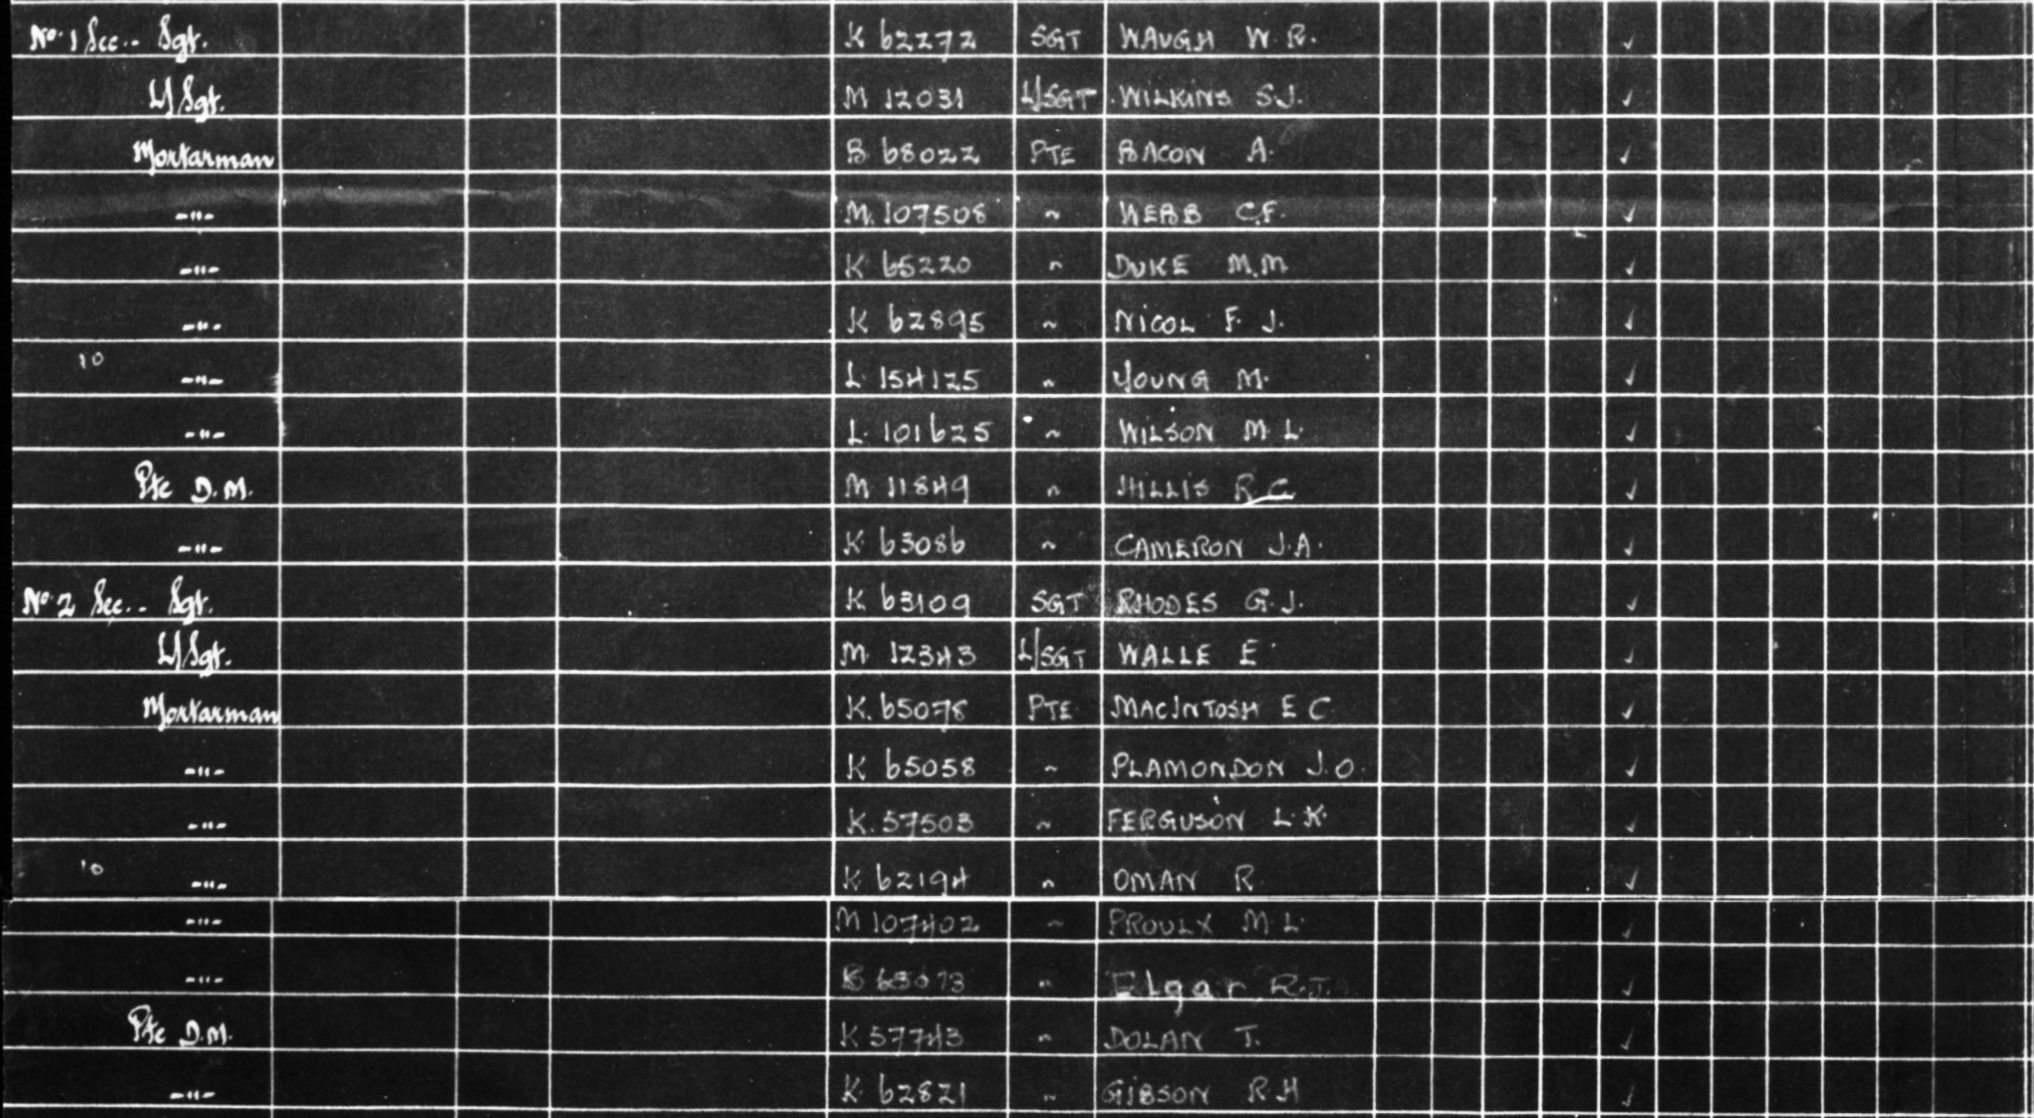 No. 1 Sec.. Sgt. K 62272 SGT WAUGH W.R. ✓
L/Sgt. M 12031 L/SGT WILKINS S.J. ✓
Mortarman B 68022 PTE BACON A. ✓
-"- M. 107508 ~ WEBB C.F. ✓
-"- K 65220 " DUKE M.M. ✓
-"- K 62895 ~ NICOL F. J. ✓
10
-"- L. 154125 " YOUNG M. ✓
-"- L. 101625 ~ WILSON M.L. ✓
Pte D.M. M 11849 " HILLIS R.C. ✓
-"- K 63086 ~ CAMERON J.A. ✓
No. 2 Sec.. Sgt. K 63109 SGT RHODES G.J. ✓
L/Sgt. M 12343 L/SGT WALLE E ✓
Mortarman K. 65078 PTE MACINTOSH E C ✓
-"- K 65058 ~ PLAMONDON J.O. ✓
-"- K. 57503 ~ FERGUSON L.K. ✓
10
-"- K 62194 " OMAN R ✓
-"- M 107402 ~ PROULX M.L. ✓
-"- " Elgar R.J. ✓
Pte D.M. K 57743 " DOLAN T. ✓
-"- K 62821 ~ GIBSON R.H ✓